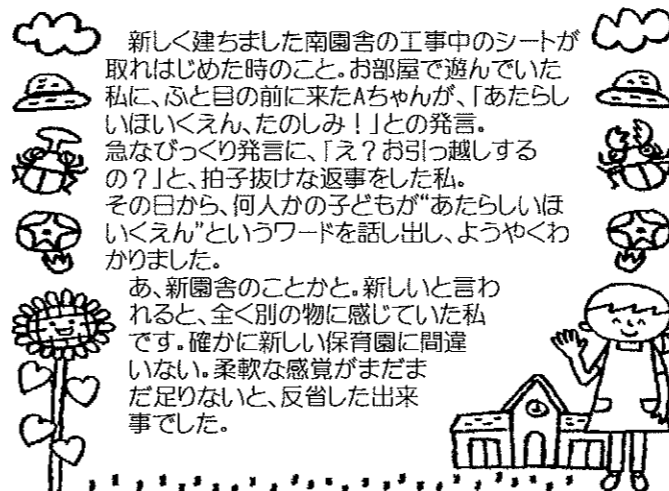 新しく建ちました南園舎の工事中のシートが
取れはじめた時のこと。お部屋で遊んでいた
私に、ふと目の前に来たAちゃんが、「あたらし
いほいくえん、たのしみ！」との発言。
急なびっくり発言に、「え？お引っ越しする
の？」と、拍子抜けな返事をした私。
その日から、何人かの子どもが“あたらしいほ
いくえん”というワードを話し出し、ようやくわ
かりました。
あ、新園舎のことかと。新しいと言わ
れると、全く別の物に感じていた私
です。確かに新しい保育園に間違
いない。柔軟な感覚がまだま
だ足りないと、反省した出来
事でした。